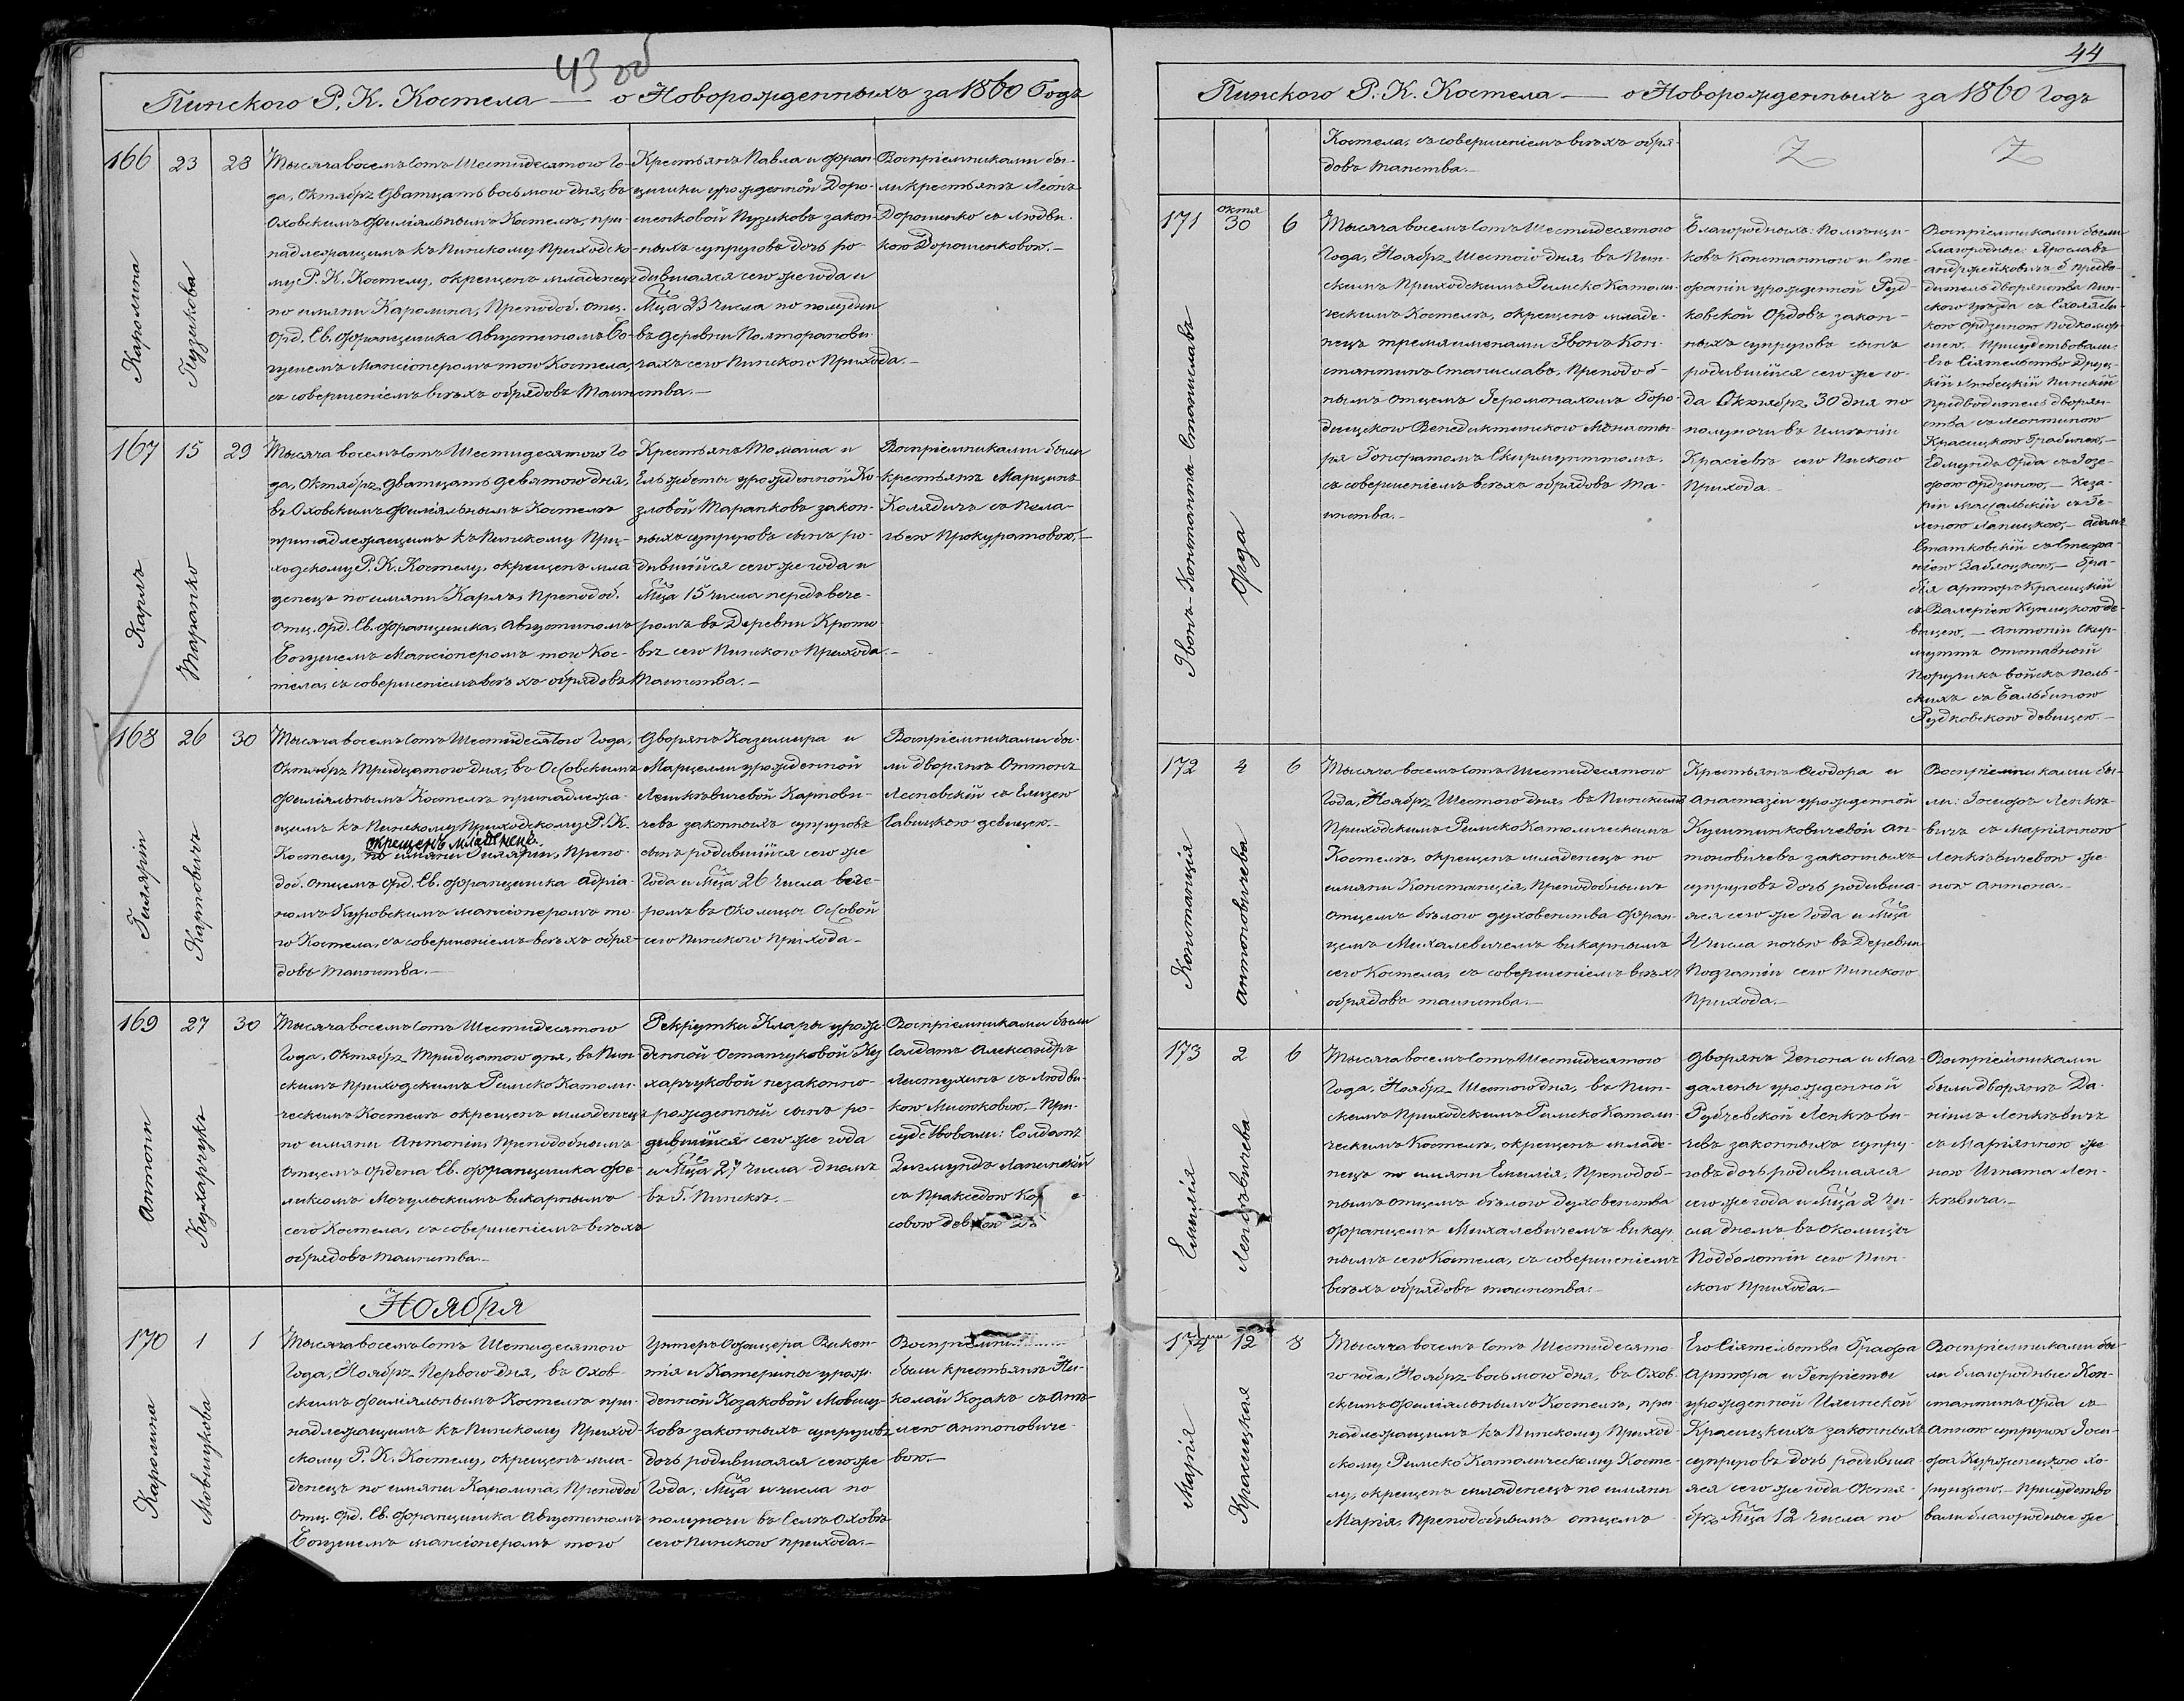 43 об
Пинскаго Р. К. Костела — о Новорожденныхъ за 1860 Годъ
166
23
28
Каролина
Пузикова
Тысяча восемъ сотъ Шестидесятого Го-
да, Октября двадцать восьмого дня, въ
Оховскимъ Филіяльнымъ Костелѣ, при-
надлежащимъ къ Пинскому Приходско-
му Р. К. Костелу, окрещенъ младенецъ
по имяни Каролина, Преподоб. отц.
Орд. Св. Францишка Августиномъ Бо-
гушемъ Мансіонеромъ того Костела,
съ совершеніемъ всѣхъ обрядовъ Таинства.—
Крестьянъ Павла и Фран-
цишки урожденной Доро-
шенковой Пузиковъ закон-
ныхъ супруговъ дочь ро-
дившаяся сего же года и
Мца 23 числа по полудни
въ деревни Полторанови-
чахъ сего Пинского Прихода.—
Воспріемниками бы-
ли крестьянъ Леонъ
Дорошенко съ Людви-
кою Дорошенковою.—
167
15
29
Карлъ
Таранко
Тысяча восемъ сотъ Шестидесятого Го-
да, Октября двадцать девятого дня,
въ Оховскимъ Филіяльнымъ Костелѣ
принадлежащимъ къ Пинскому При-
ходскому Р. К. Костелу, окрещенъ мла-
денецъ по имяни Карлъ, Преподоб.
Отц. Орд. Св. Францишка, Августиномъ
Богушемъ Мансіонеромъ того Кос-
тела, съ совершеніемъ всѣхъ обрядовъ Таинства.—
Крестьянъ Томаша и
Ельжбеты урожденной Ко-
зловой Таранковъ закон-
ныхъ супруговъ сынъ ро-
дившійся сего же года и
Мца 15 числа передъ вече-
ромъ въ Деревни Крото-
вѣ сего Пинского Прихода.—
Воспріемниками были
крестьянъ Марцинъ
Колядичъ съ Пела-
гьею Прокуратовою.—
168
26
30
Гиляріи
Карповичъ
Тысяча восемъ сотъ Шестидесятого Года,
Октября Тридцатого дня, въ Особскимъ
Филіяльнымъ Костелѣ принадлежа-
щимъ къ Пинскому Приходскому Р. К.
окрещенъ младенецъ
Костелу, по имяни Гиляріи, Препо-
доб. отцемъ Орд. Св. Францишка Адріа-
номъ Куровскимъ мансіонеромъ то-
го Костела, съ совершеніемъ всѣхъ обря-
довъ Таинства.—
Дворянъ Казимира и
Марцелли урожденной
Лемкѣвичевой Карпови-
чевъ законныхъ супруговъ
сынъ родившійся сего же
Года и Мца 26 числа вече-
ромъ въ Околицы Особой
сего Пинского Прихода.
Воспріемниками бы-
ли дворянъ Оттонъ
Лесневскій съ Елизею
Савицкою дѣвицею.—
169
27
30
Антони
Кухарчукъ
Тысяча восемъ сотъ Шестидесятого
Года, Октября Тридцатого дня, въ Пин-
скимъ Приходскимъ Римско Католи-
ческимъ Костелѣ окрещенъ младенецъ
по имяни Антоніи, Преподобнымъ
отцемъ Ордена Св. Францишка Фе-
ликсомъ Могульскимъ викарнымъ
сего Костела, съ совершеніемъ всѣхъ
обрядовъ Таинства.—
Рекрутки Клары урож-
денной Остапчуковой Ку-
харчуковой незаконно-
рожденный сынъ ро-
дившійся сего же года
и Мца 27 числа днемъ
въ Г. Пинскѣ.—
Воспріемниками были
Солдатъ Александръ
Листухинъ съ Людви-
кою Мисюковою.— При-
судствовали: Солдатъ
Зигмундъ Лапинскій
съ Праксѣдою
совою дѣвкою
Ноября
170
1
1
Каролина
Мовшукова
Тысяча восемъ сотъ Шестидесятого
Года, Ноября Первого дня, въ Охов-
скимъ Филіяльнымъ Костелѣ при-
надлежащимъ къ Пинскому Приход-
скому Р. К. Костелу, окрещенъ мла-
денецъ по имяни Каролина, Преподоб
Отц. Орд. Св. Францишка Августиномъ
Богушемъ мансіонеромъ того
Унтеръ Офицера Викен-
тія и Катерины урож-
денной Козаковой Мовшу-
ковъ законныхъ супруговъ
дочь родившаяся сего же
Года, Мца и числа по
полуночи въ Селѣ Оховѣ
сего Пинского прихода.—
Воспріемниками
были крестьянъ Ни-
колай Козакъ съ Анѣ-
лею Антоновиче-
вою.—
44
Пинского Р. К. Костела — о Новорожденныхъ за 1860 Годъ
Костела, съ совершеніемъ всѣхъ обря-
довъ таинства.—
171
октя
30
6
Івонъ-Константы-Станиславъ
Орда
Тысяча восемъ сотъ Шестидесятого
Года, Ноября Шестого дня, въ Пин-
скимъ Приходскимъ Римско Католи-
ческимъ Костелѣ, окрещенъ младе-
нецъ тремя именами Івонъ Кон-
стантинъ Станиславъ, Преподоб-
нымъ Отцемъ Іеромонахомъ Горо-
дищского Бенедиктинского Монасты-
ря Гонофатомъ Скирмунттомъ,
съ совершеніемъ всѣхъ обрядовъ Та-
инства.—
Благородныхъ: Помѣщи-
ковъ Константого и Сте-
фаніи урожденной Руд-
ковской Ордовъ закон-
ныхъ супруговъ сынъ
родившійся сего же го-
да Октября 30 дня по
полуночи въ Имѣніи
Красіевѣ сего Пинского
Прихода.
Воспріемниками были
благородные: Ярославъ
Андржейковичъ б. предво-
дитель дворянства Пин-
ского уѣзда съ Схоласти-
кою Ордзиною Подкомор-
шею.— Присудствовали:
Его Сіятельство Друц-
кій Любецкій Пинскій
Предводитель дворян-
ства съ Леонтиною
Красицкою Грабиною,—
Едмундъ Орда съ Іозе-
фою Ордзиною,— Кеза-
ріи Масальскій съ Ге-
леною Лапицкою,— Адамъ
Статковскій съ Стефа-
ніею Заблоцкою,— Гра-
бія Артуръ Красицкій
съ Валеріею Куницкою де-
вицею.— Антоніи Скир-
мунттъ отставной
Поручикъ войскъ поль-
скихъ съ Бальбиною
Рудковскою девицею.—
172
4
6
Констанція
Антоновичева
Тысяча восемъ сотъ Шестидесятого
Года, Ноября Шестого дня, въ Пинскимъ
Приходскимъ Римско Католическимъ
Костелѣ, окрещенъ младенецъ по
имяни Констанція, Преподобнымъ
отцемъ бѣлого духовенства Фран-
цемъ Михалевичемъ викарнымъ
сего Костела, съ совершеніемъ всѣхъ
обрядовъ таинства.—
Крестьянъ Ѳеодора и
Анастазіи урожденной
Куштинковичевой Ан-
тоновичевъ законныхъ
супруговъ дочь родивша-
яся сего же Года и Мца
4 числа ночью въ Деревни
Подгатіи сего Пинского
Прихода.—
Воспріемниками бы-
ли: Іосифъ Ленкѣ-
вичъ съ Маріянною
Ленкѣвичевою же-
ною Антона.—
173
2
6
Емилія
Ленкѣвичева
Тысяча восемъ сотъ Шестидесятого
Года, Ноября Шестого дня, въ Пин-
скимъ Приходскимъ Римско Католи-
ческимъ Костелѣ, окрещенъ младе-
нецъ по имяни Емилія, Преподоб-
нымъ отцемъ бѣлого духовенства
Францемъ Михалевичемъ викар-
нымъ сего Костела, съ совершеніемъ
всѣхъ обрядовъ таинства.—
Дворянъ Зенона и Маг-
далены урожденной
Рубчевской Ленкѣви-
чевъ законныхъ супру-
говъ дочь родившаяся
сего же года и Мца 2 чи-
сла днемъ въ Околицы
Подболотіи сего Пин-
ского Прихода.—
Воспріемниками
были дворянъ Да-
ніилъ Ленкѣвичъ
съ Маріянною же-
ною Игната Лен-
кѣвича.—
174
12
8
Марія
Красицкая
Тысяча восемъ сотъ Шестидесято-
го года, Ноября восьмого дня, въ Охов-
скимъ Филіяльнымъ Костелѣ, при-
надлежащимъ къ Пинскому Приход-
скому Римско Католическому Косте-
лу, окрещенъ младенецъ по имяни
Марія, Преподобнымъ отцемъ
Его Сіятельства Графа
Артура и Генріеты
урожденной Илинской
Красицкихъ законныхъ
супруговъ дочь родивша-
яся сего же года Октя-
бря Мца 12 числа по
Воспріемниками бы-
ли благородные Кон-
стантинъ Орда съ
Анною супругою Іоси-
фа Курженецкого хо-
рунжею.— Присудство-
вали благородные же